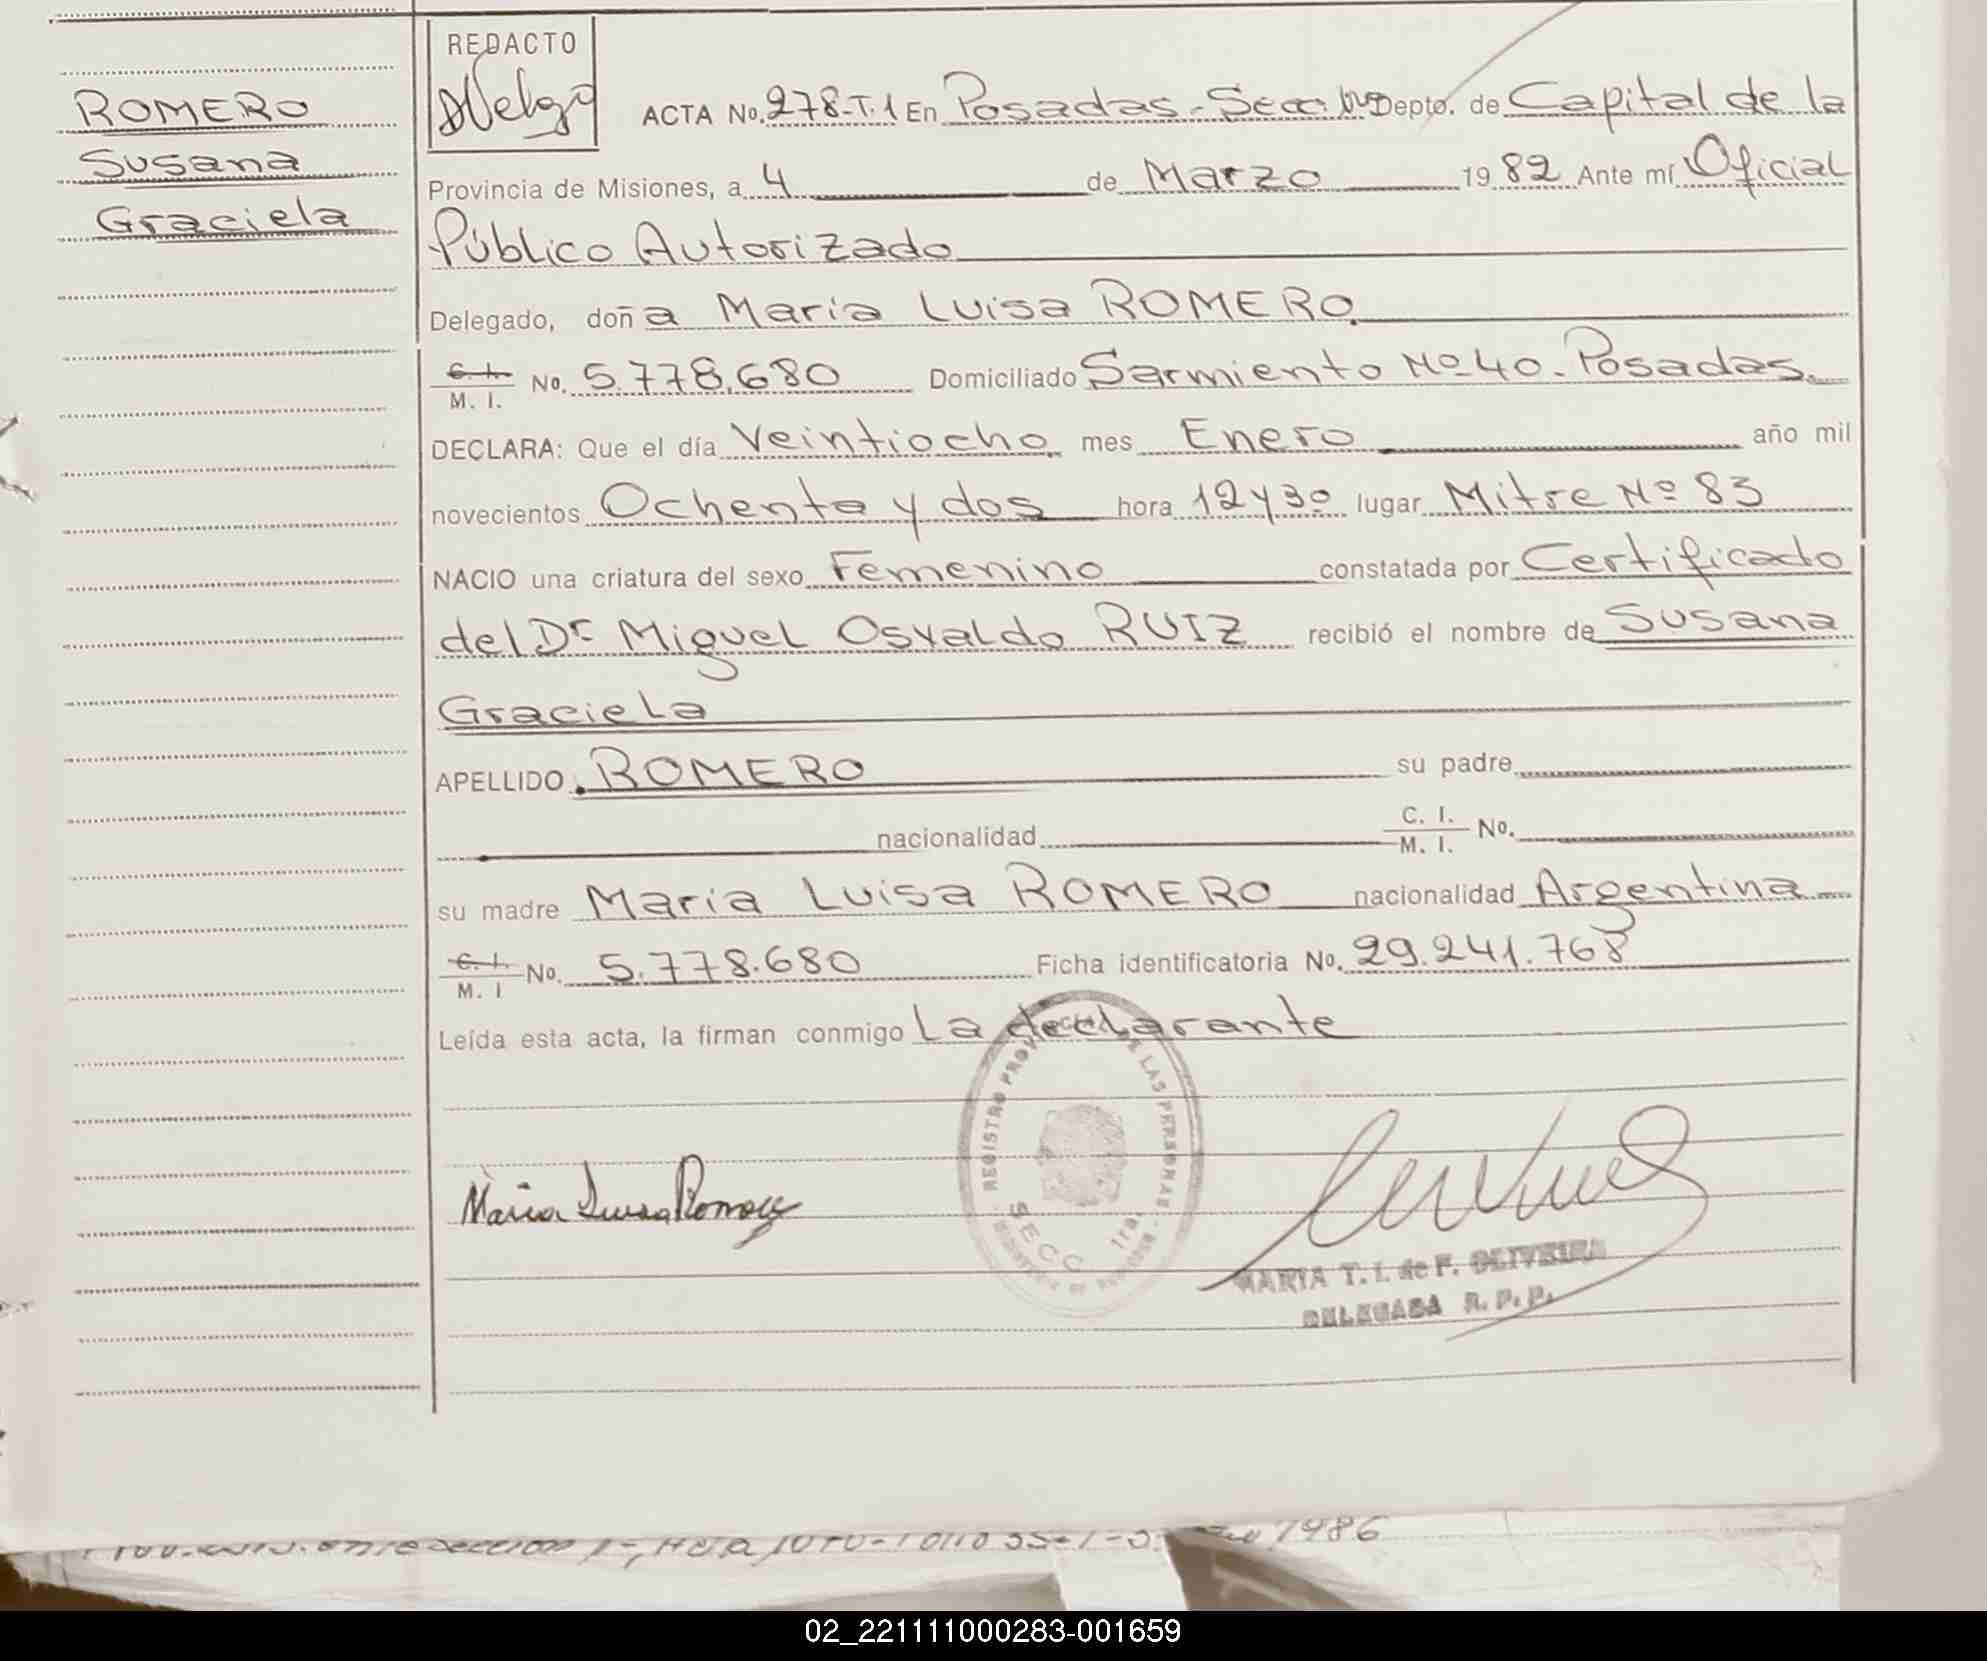 ROMERO
Susana
Graciela
REDACTO
ACTA No. 278-T.1 En Posadas - Secc. 1ra Depto. de Capital de la
Provincia de Misiones, a 4 de Marzo 1982 Ante mí Oficial
Público Autorizado
Delegado, doña Maria Luisa ROMERO
C. I. M. I. No. 5.778.680 Domiciliado Sarmiento Nº 40. Posadas.
DECLARA: Que el día Veintiocho mes Enero año mil
novecientos Ochenta y dos hora 12 y 30 lugar Mitre Nº 83
NACIO una criatura del sexo Femenino constatada por Certificado
del Dr Miguel Osvaldo RUIZ recibió el nombre de Susana
Graciela
APELLIDO ROMERO su padre
nacionalidad C. I. M. I. No.
su madre Maria Luisa ROMERO nacionalidad Argentina
C. I. M. I No. 5.778.680 Ficha identificatoria No. 29.241.768
Leída esta acta, la firman conmigo La declarante
REGISTRO PROV DE LAS PERSONAS
SECC 1ra.
Maria Luisa Romero
MARIA T. I. de F. OLIVEIRA
DELEGADA R. P. P.
1986
02_221111000283-001659